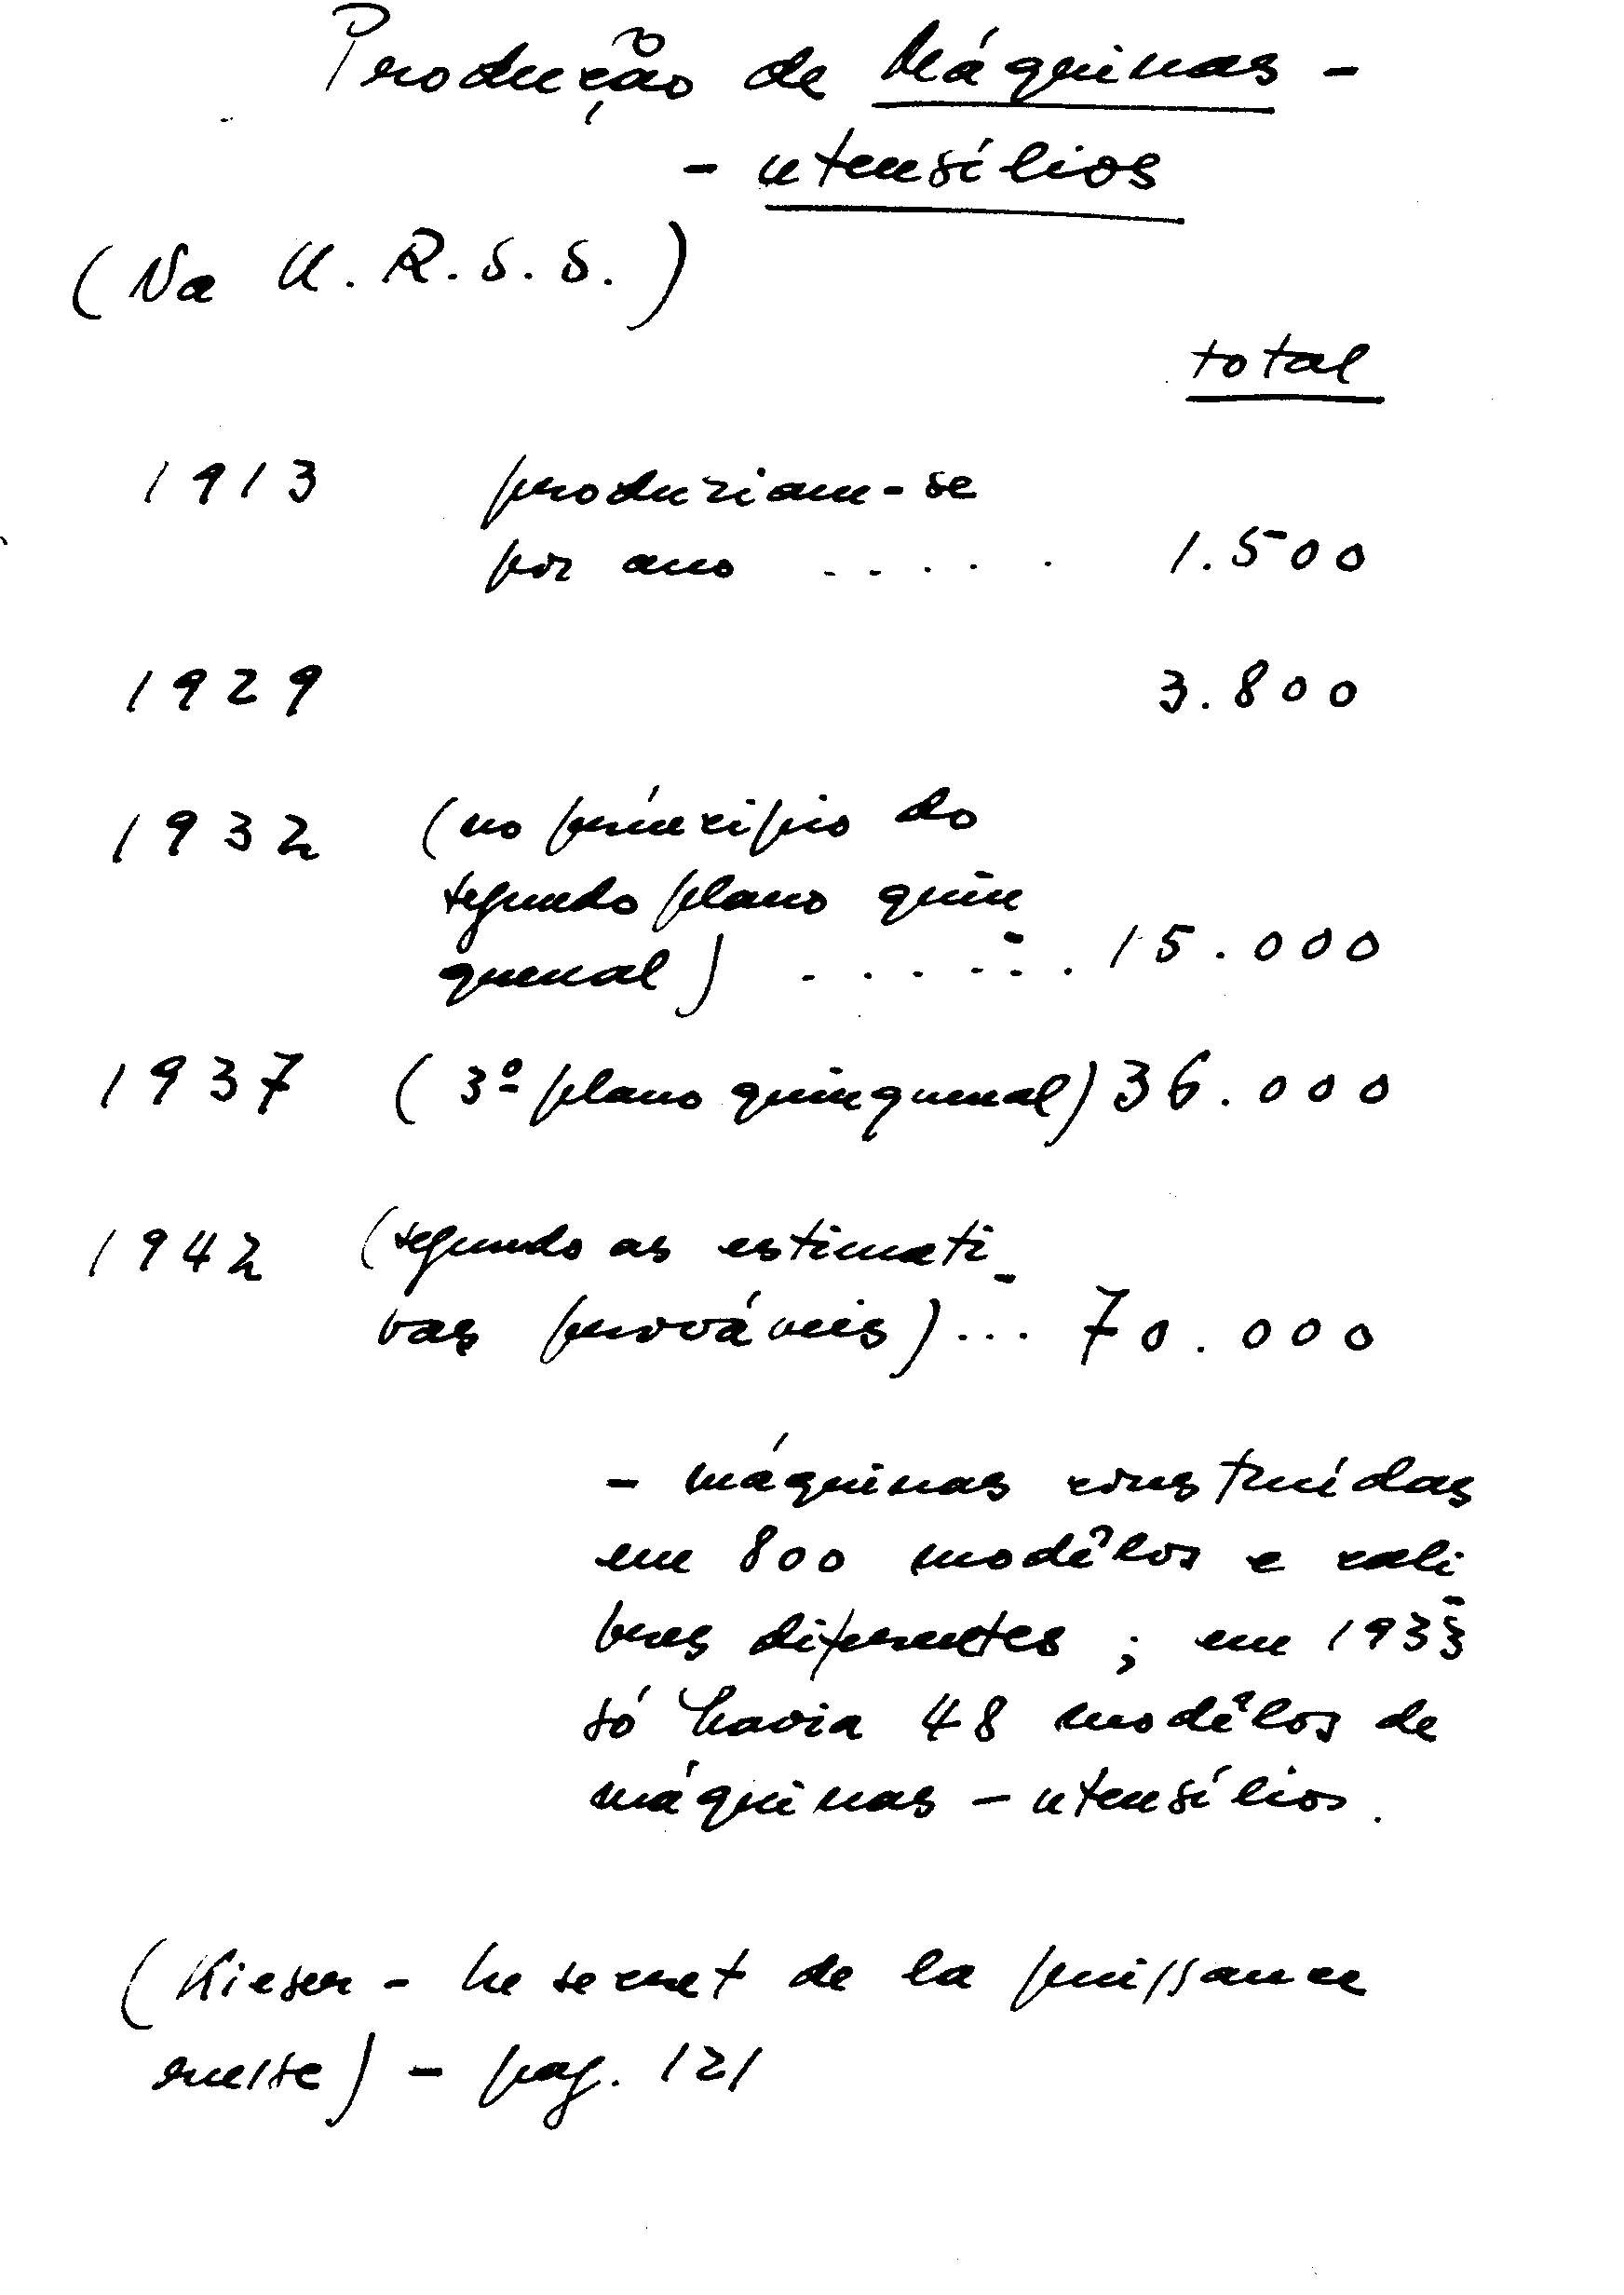 Produção de Máquinas -
- utensílios
(Na U.R.S.S.)
total
1913 produziam-se
por ano ..... 1.500
1929 3.800
1932 (no príncipio do
segundo plano quin-
quenal) ...... 15.000
1937 (3º plano quinquenal) 36.000
1942 (segundo as estimati-
vas prováveis) ... 70.000
- máquinas construídas
em 800 modêlos e cali-
bres diferentes ; em 1933
só havia 48 modêlos de
máquinas - utensílios.
(Kieser - Le secret de la puissance
russe) - pag. 121